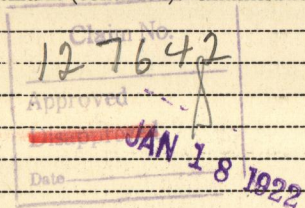 Claim No.
127642
Approved
Disapproved
JAN 18 1922
Date